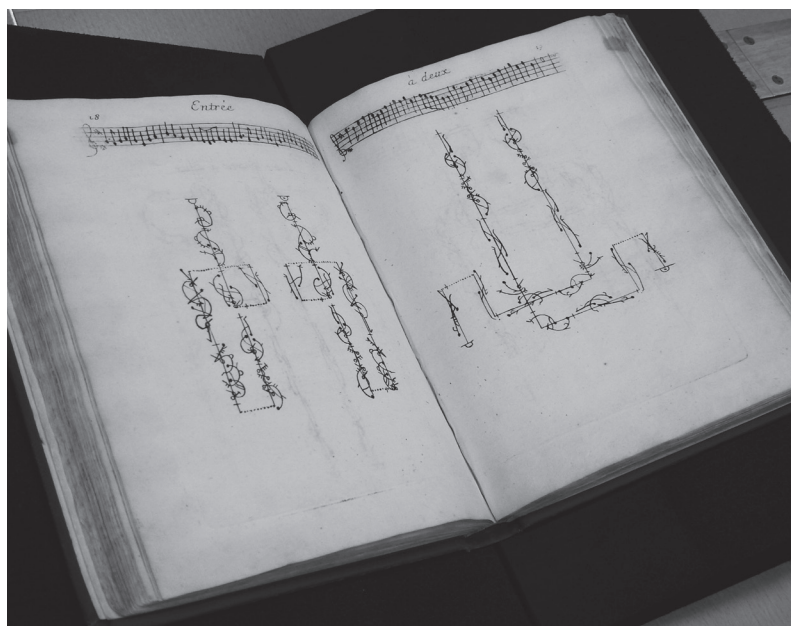 Entrée
à deux